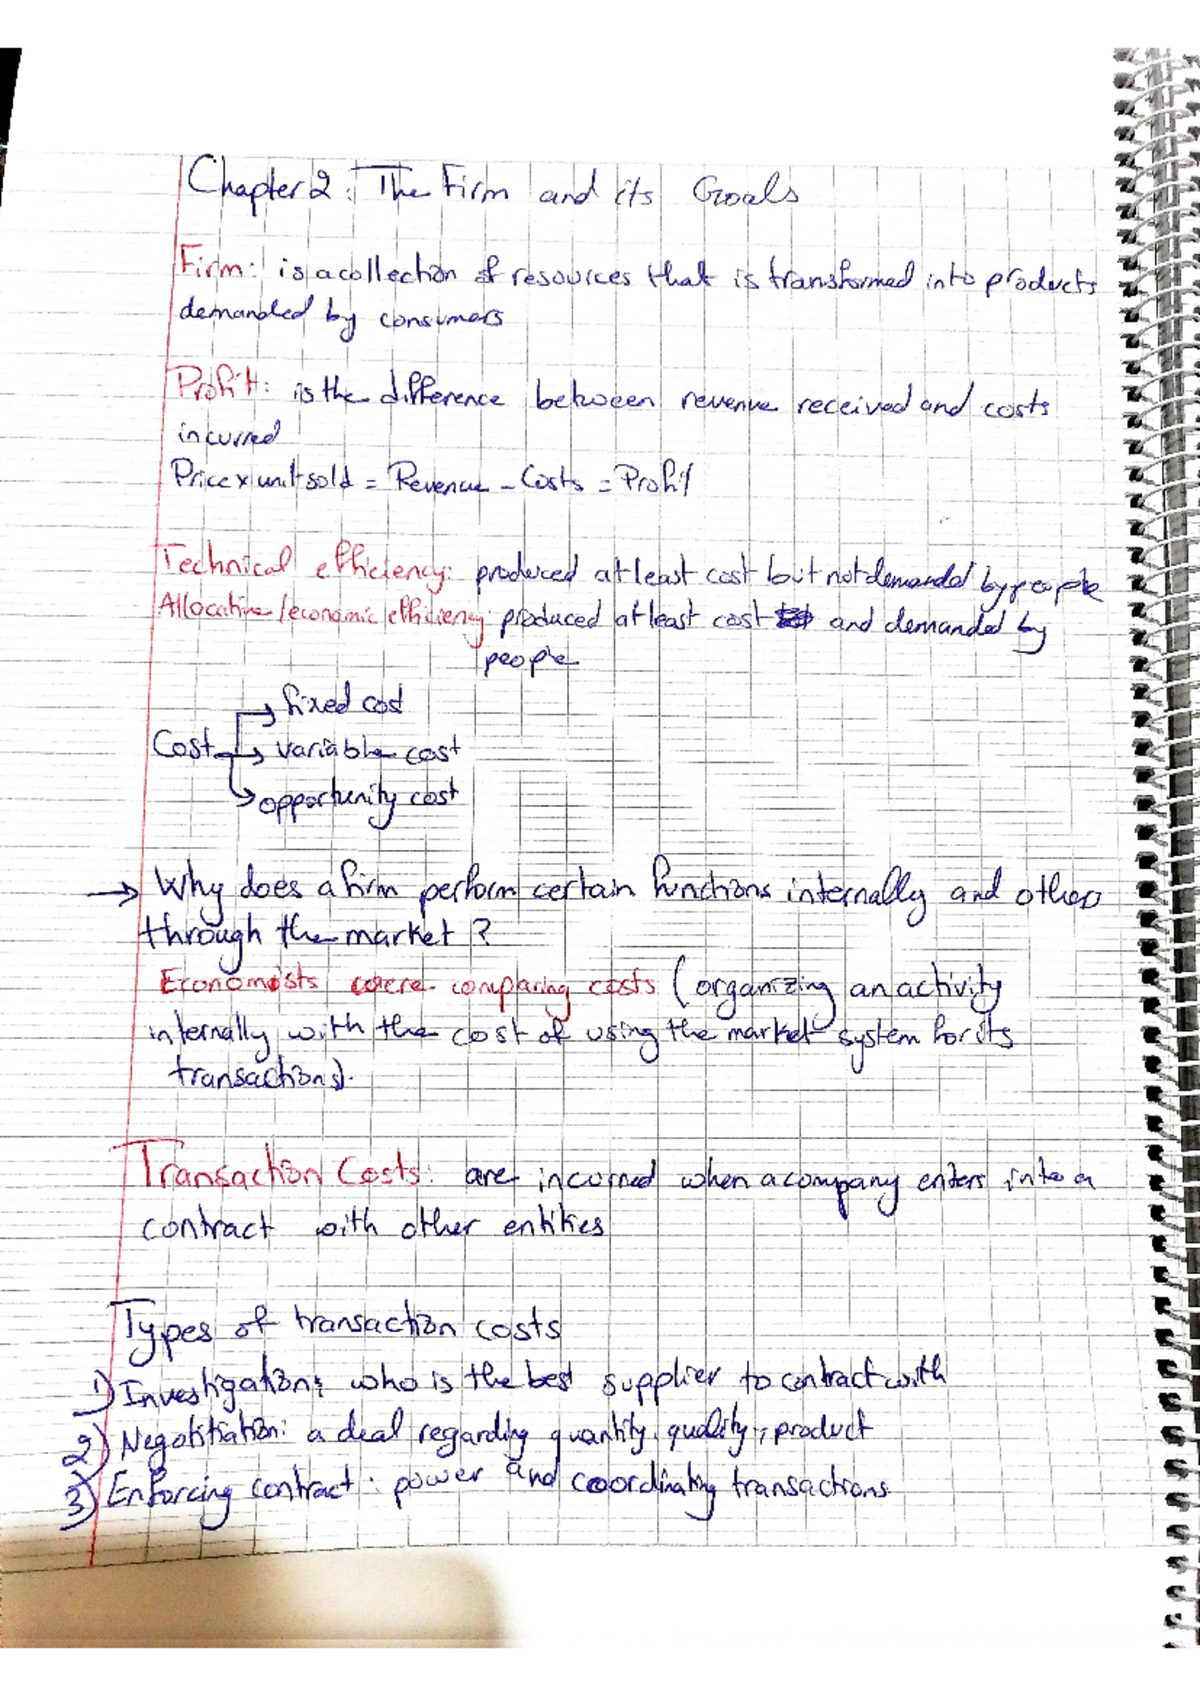 Chapter 2: The Firm and its Goals
Firm: is a collection of resources that is transformed into products
demanded by consumers
Profit: is the difference between revenue received and costs
incurred
Price x unit sold = Revenue - Costs = Profit
Technical efficiency: produced at least cost but not demanded by people
Allocative/economic efficiency: produced at least cost and demanded by
people
fixed cost
Cost → variable cost
opportunity cost
→ Why does a firm perform certain functions internally and others
through the market?
Economists were comparing costs (organizing an activity
internally with the cost of using the market system for its
transactions).
Transaction Costs: are incurred when a company enters into a
contract with other entities
Types of transaction costs
1) Investigation: who is the best supplier to contract with
2) Negotitiation: a deal regarding quantity, quality, product
3) Enforcing contract: power and coordinating transactions